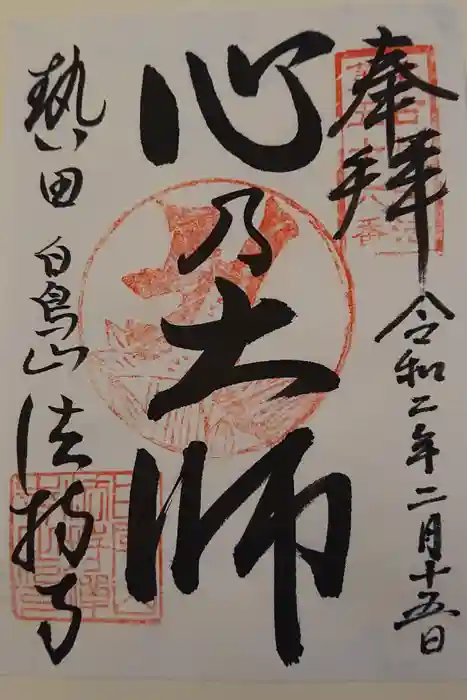 奉拝
令和二年二月十五日
心乃大師
熱田 白鳥山 法持寺